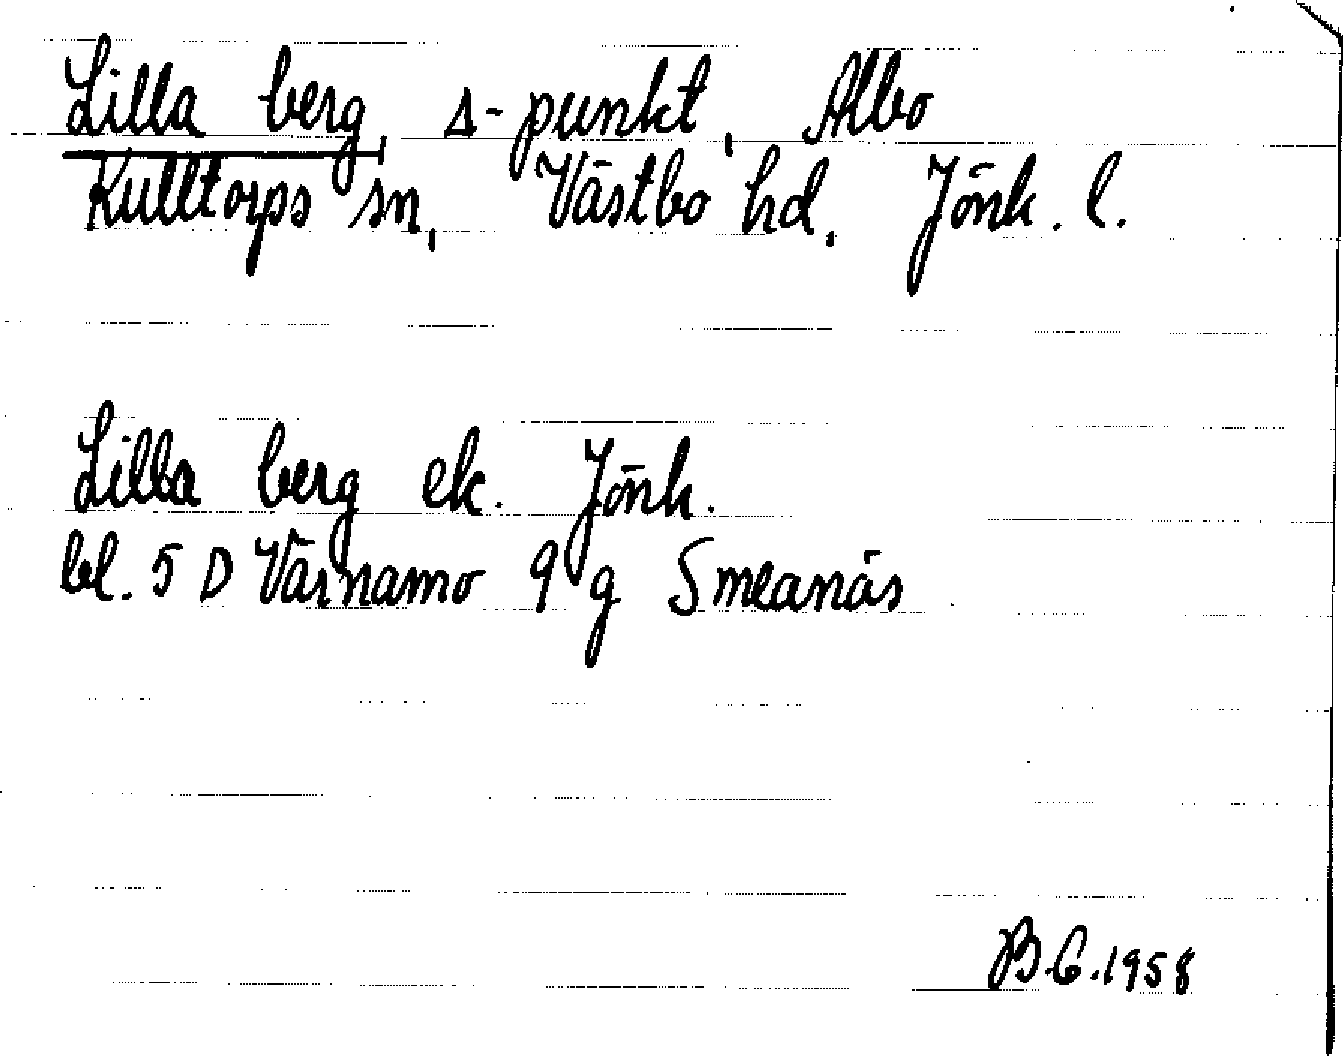 Lilla berg, Δ-punkt, Albo
Kulltorps sn, Västbo hd, Jönk. l.
Lilla berg ek. Jönk.
bl. 5 D Värnamo 9 g Smeanäs
B.G. 1958